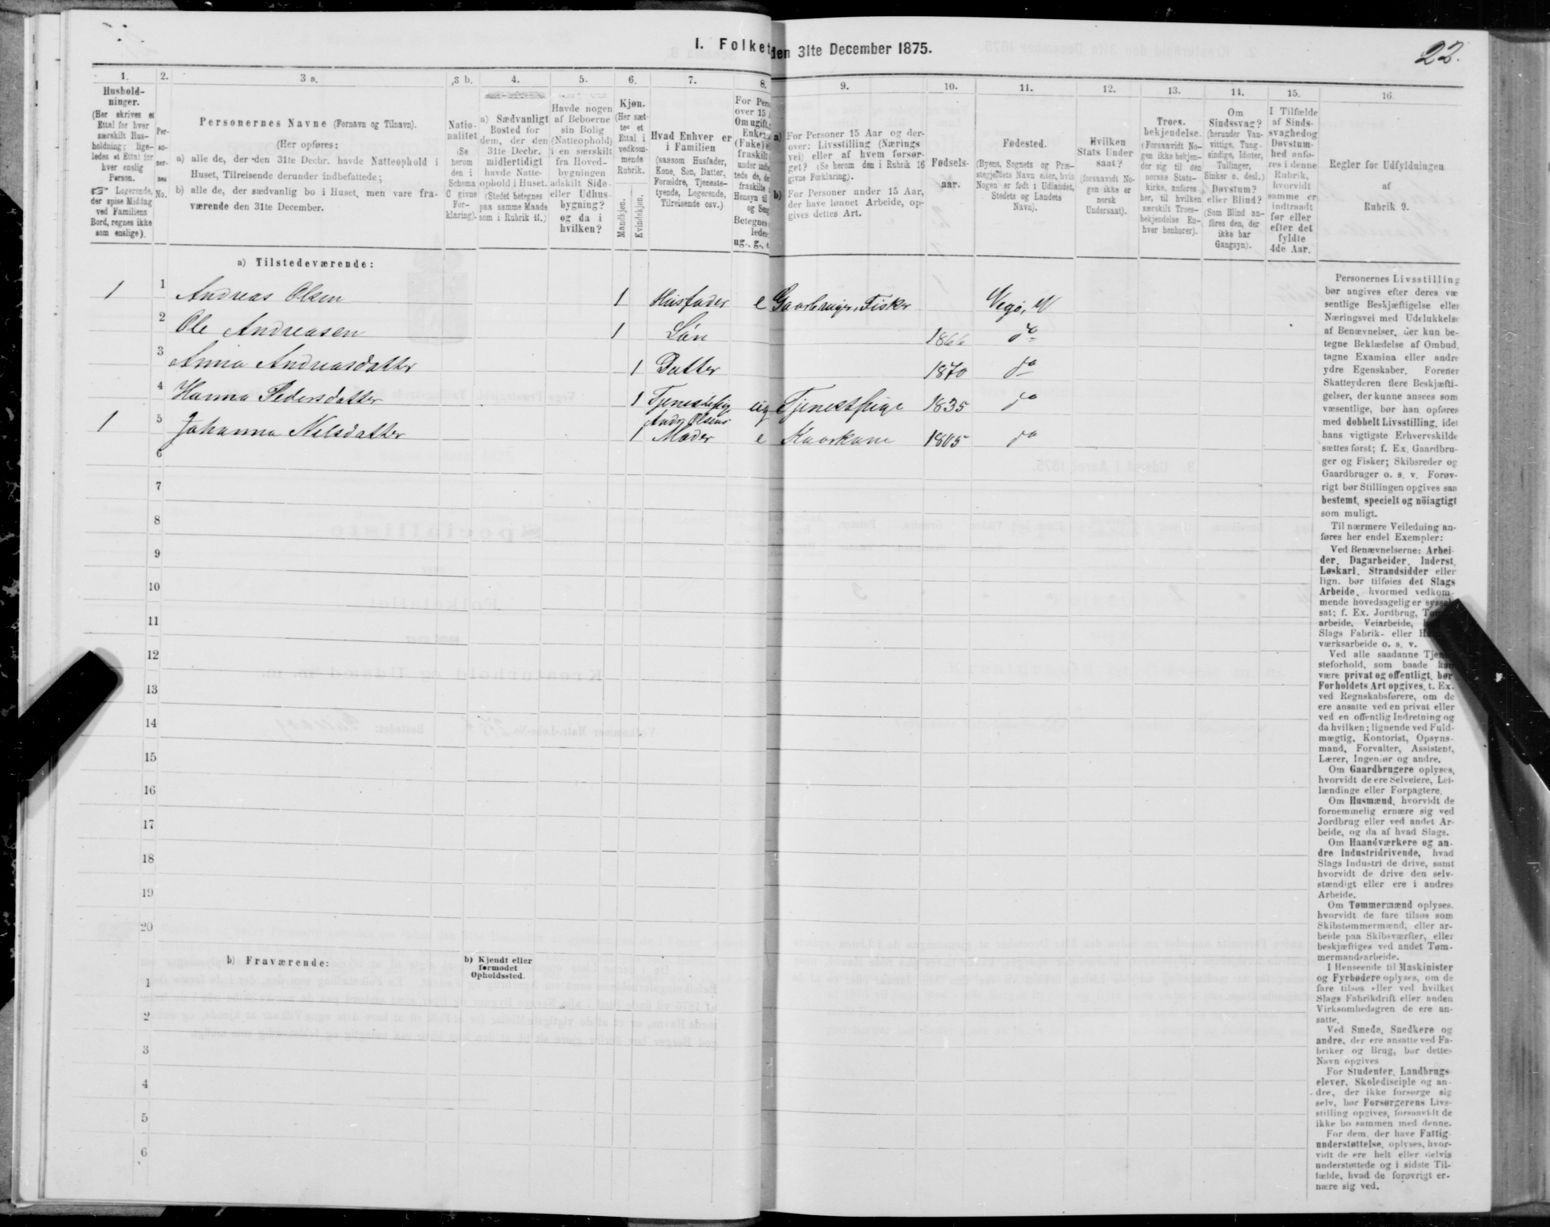 I. Folket den 31te December 1875.
22.
1.
Hushold-
ninger.
(Her skrives et
Ettal for hver
særskilt Hus-
holdning; lige-
ledes et Ettal for
hver enslig
Person.
☞ Logerende,
der spise Middag
ved Familiens
Bord, regnes ikke
som enslige).
2.
Per-
so-
ner-
nes
No.
3 a.
Personernes Navne (Fornavn og Tilnavn).
(Her opføres:
a) alle de, der den 31te Decbr. havde Natteophold i
Huset, Tilreisende derunder indbefattede;
b) alle de, der sædvanlig bo i Huset, men vare fra-
værende den 31te December.
3 b.
Natio-
nalitet
(Se
herom
den i
Schema
6 givne
For-
klaring).
4.
a) Sædvanligt
Bosted for
dem, der den
31te Decbr.
midlertidigt
havde Natte-
ophold i Huset.
(Stedet betegnes
paa samme Maade
som i Rubrik 11.)
5.
Havde nogen
af Beboerne
sin Bolig
(Natteophold)
i en særskilt
fra Hoved-
bygningen
adskilt Side-
eller Udhus-
bygning?
og da i
hvilken?
6.
Kjøn.
(Her sæt-
tes et
Ettal i
vedkom-
mende
Rubrik.
Mandkjøn.
Kvindekjøn.
7.
Hvad Enhver er
i Familien
(saasom Husfader,
Kone, Søn, Datter,
Forældre, Tjeneste-
tyende, Logerende,
Tilreisende osv.)
8.
For Pers
over 15
Om ugift,
Enke
(Fuke)
fraskilt
9.
a) For Personer 15 Aar og der-
over: Livsstilling (Nærings-
vei) eller af hvem forsør-
get? (Se herom den i Rubrik 16
givne Forklaring).
b) For Personer under 15 Aar,
der have lønnet Arbeide, op-
gives dettes Art.
10.
Fødsels-
aar.
11.
Fødested.
(Byens, Sognets og Præ-
stegjeldets Navn eller, hvis
Nogen er født i Udlandet,
Stedets og Landets
Navn).
12.
Hvilken
Stats Under
saat?
(forsaavidt No-
gen ikke er
norsk
Undersaat).
13.
Troes-
bekjendelse.
(Forsaavidt No-
gen ikke bekjen-
der sig til den
norske Stats-
kirke, anføres
her, til hvilken
særskilt Troes-
bekjendelse En-
hver henhører).
14.
Om
Sindssvag?
(herunder Van-
vittige, Tung-
sindige, Idioter,
Tullinger,
Sinker o. desl.)
Døvstum?
eller Blind?
(Som Blind an-
føres den, der
ikke har
Gangsyn).
15.
I Tilfælde
af Sinds-
svaghed og
Døvstum-
hed anfø-
res i denne
Rubrik,
hvorvidt
samme er
indtraadt
før eller
efter det
fyldte
4de Aar.
16.
Regler for Udfyldningen
af
Rubrik 9.
a) Tilstedeværende:
1 1 Andreas Olsen 1 Husfader e Gaardbruger, Fisker Vegø, M
2 Ole Andreasen 1 Søn 1866 do
3 Anna Andreasdatter 1 Datter 1870 do
4 Hanna Pedersdatter 1 Tjenestepige ug Tjenestpige 1835 do
1 5 Johanna Nilsdatter 1 Andr. Olsens Moder e Kaarkone 1805 do
6
7
8
9
10
11
12
13
14
15
16
17
18
19
20
b) Fraværende:
b) Kjendt eller
formodet
Opholdssted.
1
2
3
4
5
6
Personernes Livsstilling
bør angives efter deres væ
sentlige Beskjæftigelse eller
Næringsvei med Udelukkelse
af Benævnelser, der kun be-
tegne Beklædelse af Ombud,
tagne Examina eller andre
ydre Egenskaber. Forener
Skatteyderen flere Beskjæfti-
gelser, der kunne ansees som
væsentlige, bør han opføres
med dobbelt Livsstilling, idet
hans vigtigste Erhvervskilde
sættes først; f. Ex. Gaardbru-
ger og Fisker; Skibsreder og
Gaardbruger o. s. v. Forøv-
rigt bør Stillingen opgives saa
bestemt, specielt og nöiagtigt
som muligt.
Til nærmere Veiledning an-
føres her endel Exempler:
Ved Benævnelserne: Arbei-
der, Dagarbeider, Inderst,
Løskarl, Strandsidder eller
lign. bør tilføies det Slags
Arbeide, hvormed vedkom-
mende hovedsagelig er syssel
sat; f. Ex. Jordbrug,
arbeide, Veiarbeide,
Slags Fabrik- eller
værksarbeide o. s. v.
Ved alle saadanne Tjen
steforhold, som baade kan
være privat og offentligt, bør
Forholdets Art opgives, t. Ex.
ved Regnskabsførere, om de
ere ansatte ved en privat eller
ved en offentlig Indretning og
da hvilken; lignende ved Fuld-
mægtig, Kontorist, Opsyns-
mand, Forvalter, Assistent,
Lærer, Ingeniør og andre.
Om Gaardbrugere oplyses,
hvorvidt de ere Selveiere, Lei-
lændinge eller Forpagtere.
Om Husmænd, hvorvidt de
fornemmelig ernære sig ved
Jordbrug eller ved andet Ar-
beide, og da af hvad Slags.
Om Haandværkere og an-
dre Industridrivende, hvad
Slags Industri de drive, samt
hvorvidt de drive den selv-
stændigt eller ere i andres
Arbeide.
Om Tømmermænd oplyses,
hvorvidt de fare tilsøs som
Skibstømmermænd, eller ar-
beide paa Skibsværfter, eller
beskjæftiges ved andet Tøm-
mermandsarbeide.
I Henseende til Maskinister
og Fyrbødere oplyses, om de
fare tilsøs eller ved hvilket
Slags Fabrikdrift eller anden
Virksomhedsgren de ere an-
satte.
Ved Smede, Snedkere og
andre, der ere ansatte ved Fa-
briker og Brug, bør dettes
Navn opgives
For Studenter, Landbrugs-
elever, Skoledisciple og an-
dre, der ikke forsørge sig
selv, bør Forsørgerens Livs-
stilling opgives, forsaavidt de
ikke bo sammen med denne.
For dem, der have Fattig
understøttelse, oplyses, hvor-
vidt de ere helt eller delvis
understøttede og i sidste Til-
fælde, hvad de forøvrigt er-
nære sig ved.